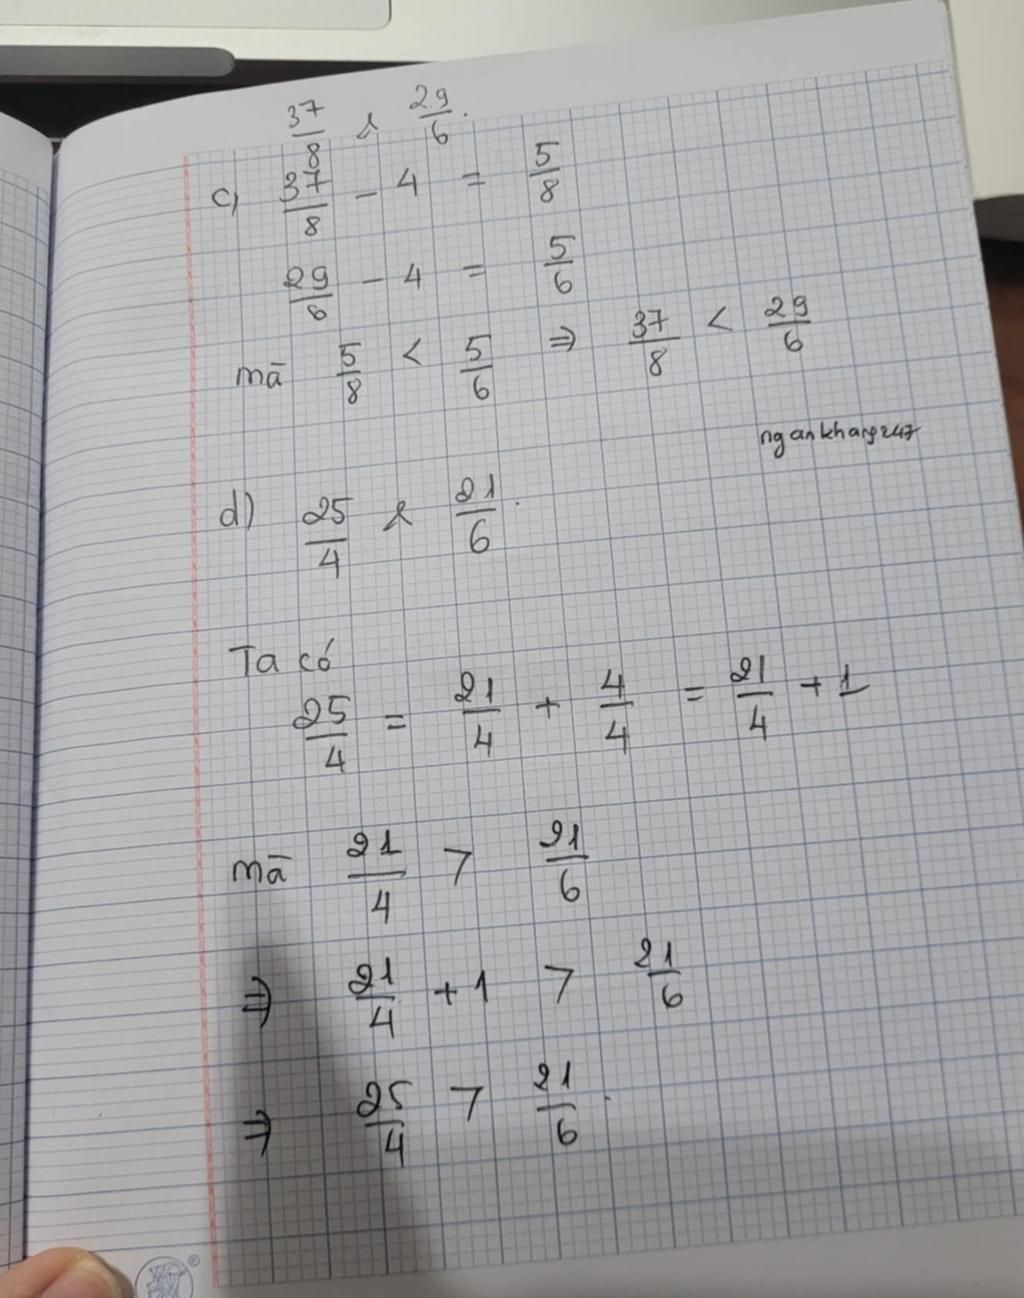 37/8 & 29/6.
c, 37/8 - 4 = 5/8
29/6 - 4 = 5/6
mā 5/8 < 5/6 ⇒ 37/8 < 29/6
ngankhang247
d) 25/4 & 21/6.
Ta có
25/4 = 21/4 + 4/4 = 21/4 + 1
mā 21/4 > 21/6
⇒ 21/4 + 1 > 21/6
⇒ 25/4 > 21/6.